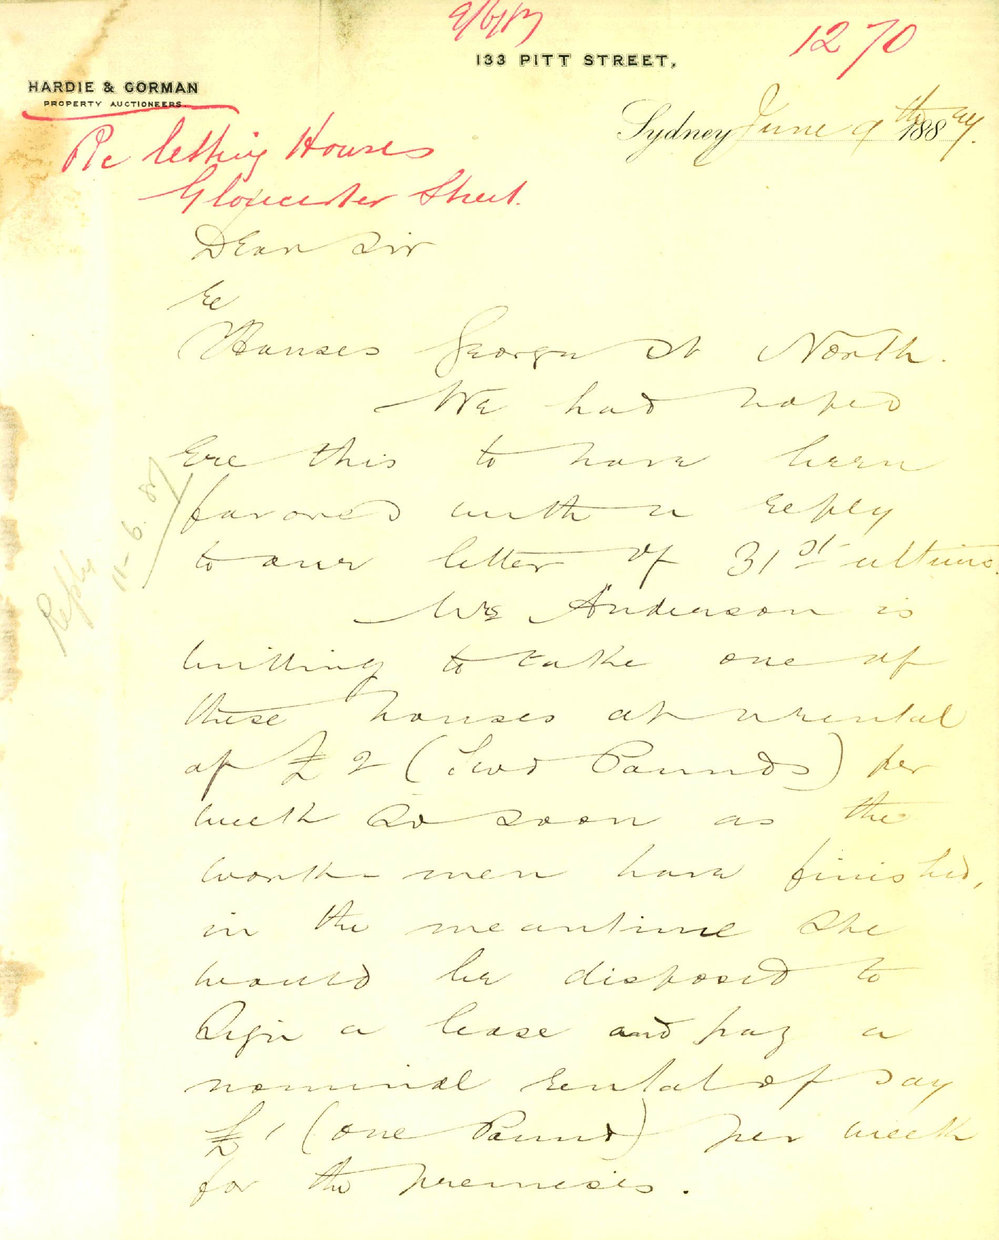 9/6/87
1270
133 PITT STREET,
HARDIE & GORMAN
PROPERTY AUCTIONEERS.
Sydney June 9th 1887.
Re letting Houses
Gloucester Street.
Dear Sir
Re
Houses George St North.
We had hoped
Ere this to have been
favored with a reply
to our letter of 31st ultimo.
Mrs Anderson is
willing to take one of
these houses at a rental
of £2 (Two Pounds) per
week so soon as the
work men have finished,
in the meantime she
would be disposed to
sign a lease and pay a
nominal rental of say
£1 (one Pound) per week
for the premises.
Reply 11-6.87